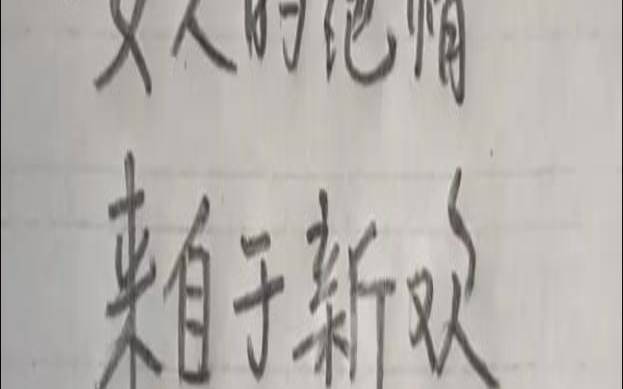 女人的绝情
来自于新欢